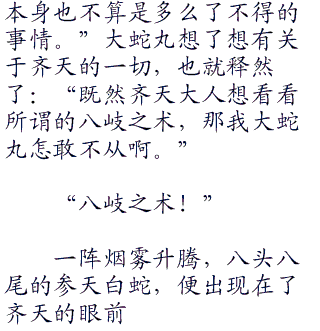 本身也不算是多么了不得的
事情。”大蛇丸想了想有关
于齐天的一切，也就释然
了：“既然齐天大人想看看
所谓的八岐之术，那我大蛇
丸怎敢不从啊。”
“八岐之术！”
一阵烟雾升腾，八头八
尾的参天白蛇，便出现在了
齐天的眼前